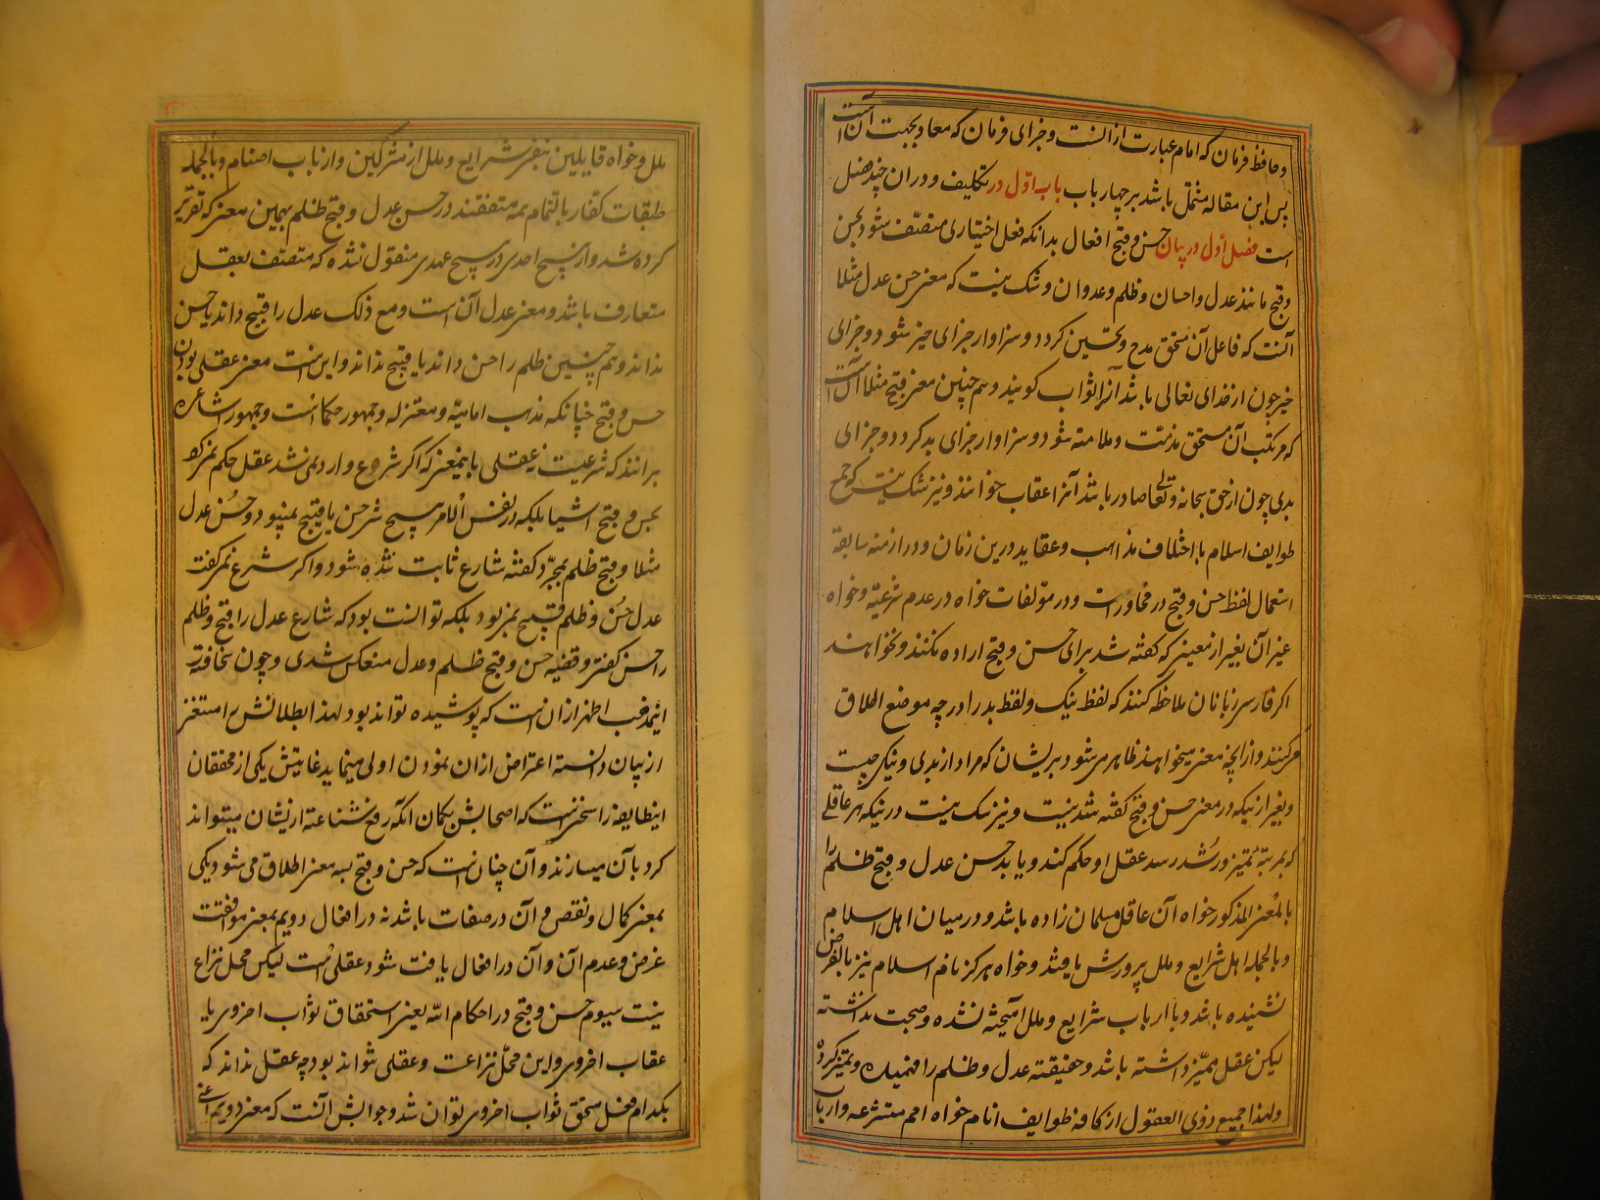 و حافظ فرمان که امام عبارت از انست و جزای فرمان که معاد بجهت آن است
پس این مقاله مشتمل باشد بر چهار باب باب اوّل در تکلیف و دران چند فصل
است فصل اوّل در بیان حسن و قبح افعال بدانکه فعل اختیاری متصّف شود بحسن
و قبح مانند عدل و احسان و ظلم و عدوان و شک نیست که معنی حسن عدل مثلا
آنست که فاعل آن مستحق مدح و تحسین کردد و سزاوار جزای خیر شود و جزای
خیر چون از خدای تعالی باشد آنرا ثواب کویند و هم چنین معنی قبح مثلا آنست
که مرتکب آن مستحق مذمّت و ملامة شود و سزاوار جزای بد کردد و جزای
بدی چون از حق سبحانه و تعالی صادر باشد آنرا عقاب خوانند و نیز شک نیست که جمع
طوایف اسلام با اختلاف مذاهب و عقاید درین زمان و در ازمنه سابقه
استعمال لفظ حسن و قبح در محاورات و در مؤلفات خواه در عدم شرعیّه و خواه
غیر آن بغیر از معنی که کفته شد برای حسن و قبح اراده نکنند و نخواهند
اکر فارسی زبانان ملاحظه کنند که لفظ نیک و لفظ بد را در چه موضع اطلاق
میکنند و از انچه معنی میخواهند ظاهر می شود بریشان که مراد از بدی و نیکی چیست
و بغیر از نیکه در معنی حسن و قبح کفته شد نیست و نیز شک نیست در نیکه هر عاقلی
که بمرتبهٔ تمیز و رشد رسد عقل او حکم کند و یابد حسن عدل و قبح ظلم را
بالمعنی المذکور خواه آن عاقل مسلمان زاده باشد و در میان اهل اسلام
و بالجمله اهل شرایع و ملل پرورش یافته و خواه هرکز نام اسلام نیز بالفرض
نشنیده باشد و با ارباب شرایع و ملل آمیخته نشده و صحبت نداشته
لیکن عقل ممیّز داشته باشد و حقیقة عدل و ظلم را فهمیده و تمیز کرده
و لهذا جمیع ذوی العقول از کافه طوایف انام خواه امم متشرعه و ارباب
ملل و خواه قایلین بنفی شرایع و ملل از مشرکین و ارباب اصنام و بالجمله
طبقات کفار بالتّمام همه متفقند در حسن عدل و قبح ظلم بهمین معنی که تقریر
کرده شد و از هیچ احدی در هیچ عهدی منقول نشده که متصّف بعقل
متعارف باشد و معنی عدل آن است و مع ذلک عدل را قبیح داند یا حسن
نداند و هم چنین ظلم را حسن داند یا قبیح نداند و این است معنی عقلی بودن
حسن و قبح چنانکه مذهب امامیّه و معتزله و جمهور حکما است و جمهور اشاعره
برانند که شرعیست نه عقلی باینمعنی که اکر شرع وارد نمی شد عقل حکم نمی کرد
بحسن و قبح اشیا بلکه در نفس الامر هیچ شی حسن یا قبیح نمیبود و حُسن عدل
مثلا و قبح ظلم بمجرّد کفته شارع ثابت شده شود و اکر شرع نمی کفت
عدل حسن و ظلم قبیح نمی بود بلکه توانست بود که شارع عدل را قبیح و ظلم
را حسن کفتی و قضیه حسن و قبح ظلم و عدل منعکس شدی و چون سخافة
این مذهب اظهر از ان است که پوشیده تواند بود لهذا بطلانش را مستغنی
از بیان دانسته اعتراض از ان نمودن اولی مینماید غایتش یکی از محققان
اینطایفه را سخنیست که اصحابش بکمان آنکه رفع شناعة از یشان میتواند
کرد بآن مینازند و آن چنانست که حسن و قبح بسه معنی اطلاق می شود یکی
بمعنی کمال و نقص و آن در صفات باشد نه در افعال دویم بمعنی موافقت
غرض و عدم آن و آن در افعال یافت شود و عقلی است لیکن محل نزاع
نیست سیوم حسن و قبح در احکام الله یعنی استحقاق ثواب اخروی یا
عقاب اخروی و این محلّ نزاعست و عقلی نتواند بود چه عقل نداند که
بکدام فعل مستحق ثواب اخروی توان شد و جوابش آنست که معنی دویم اعنی